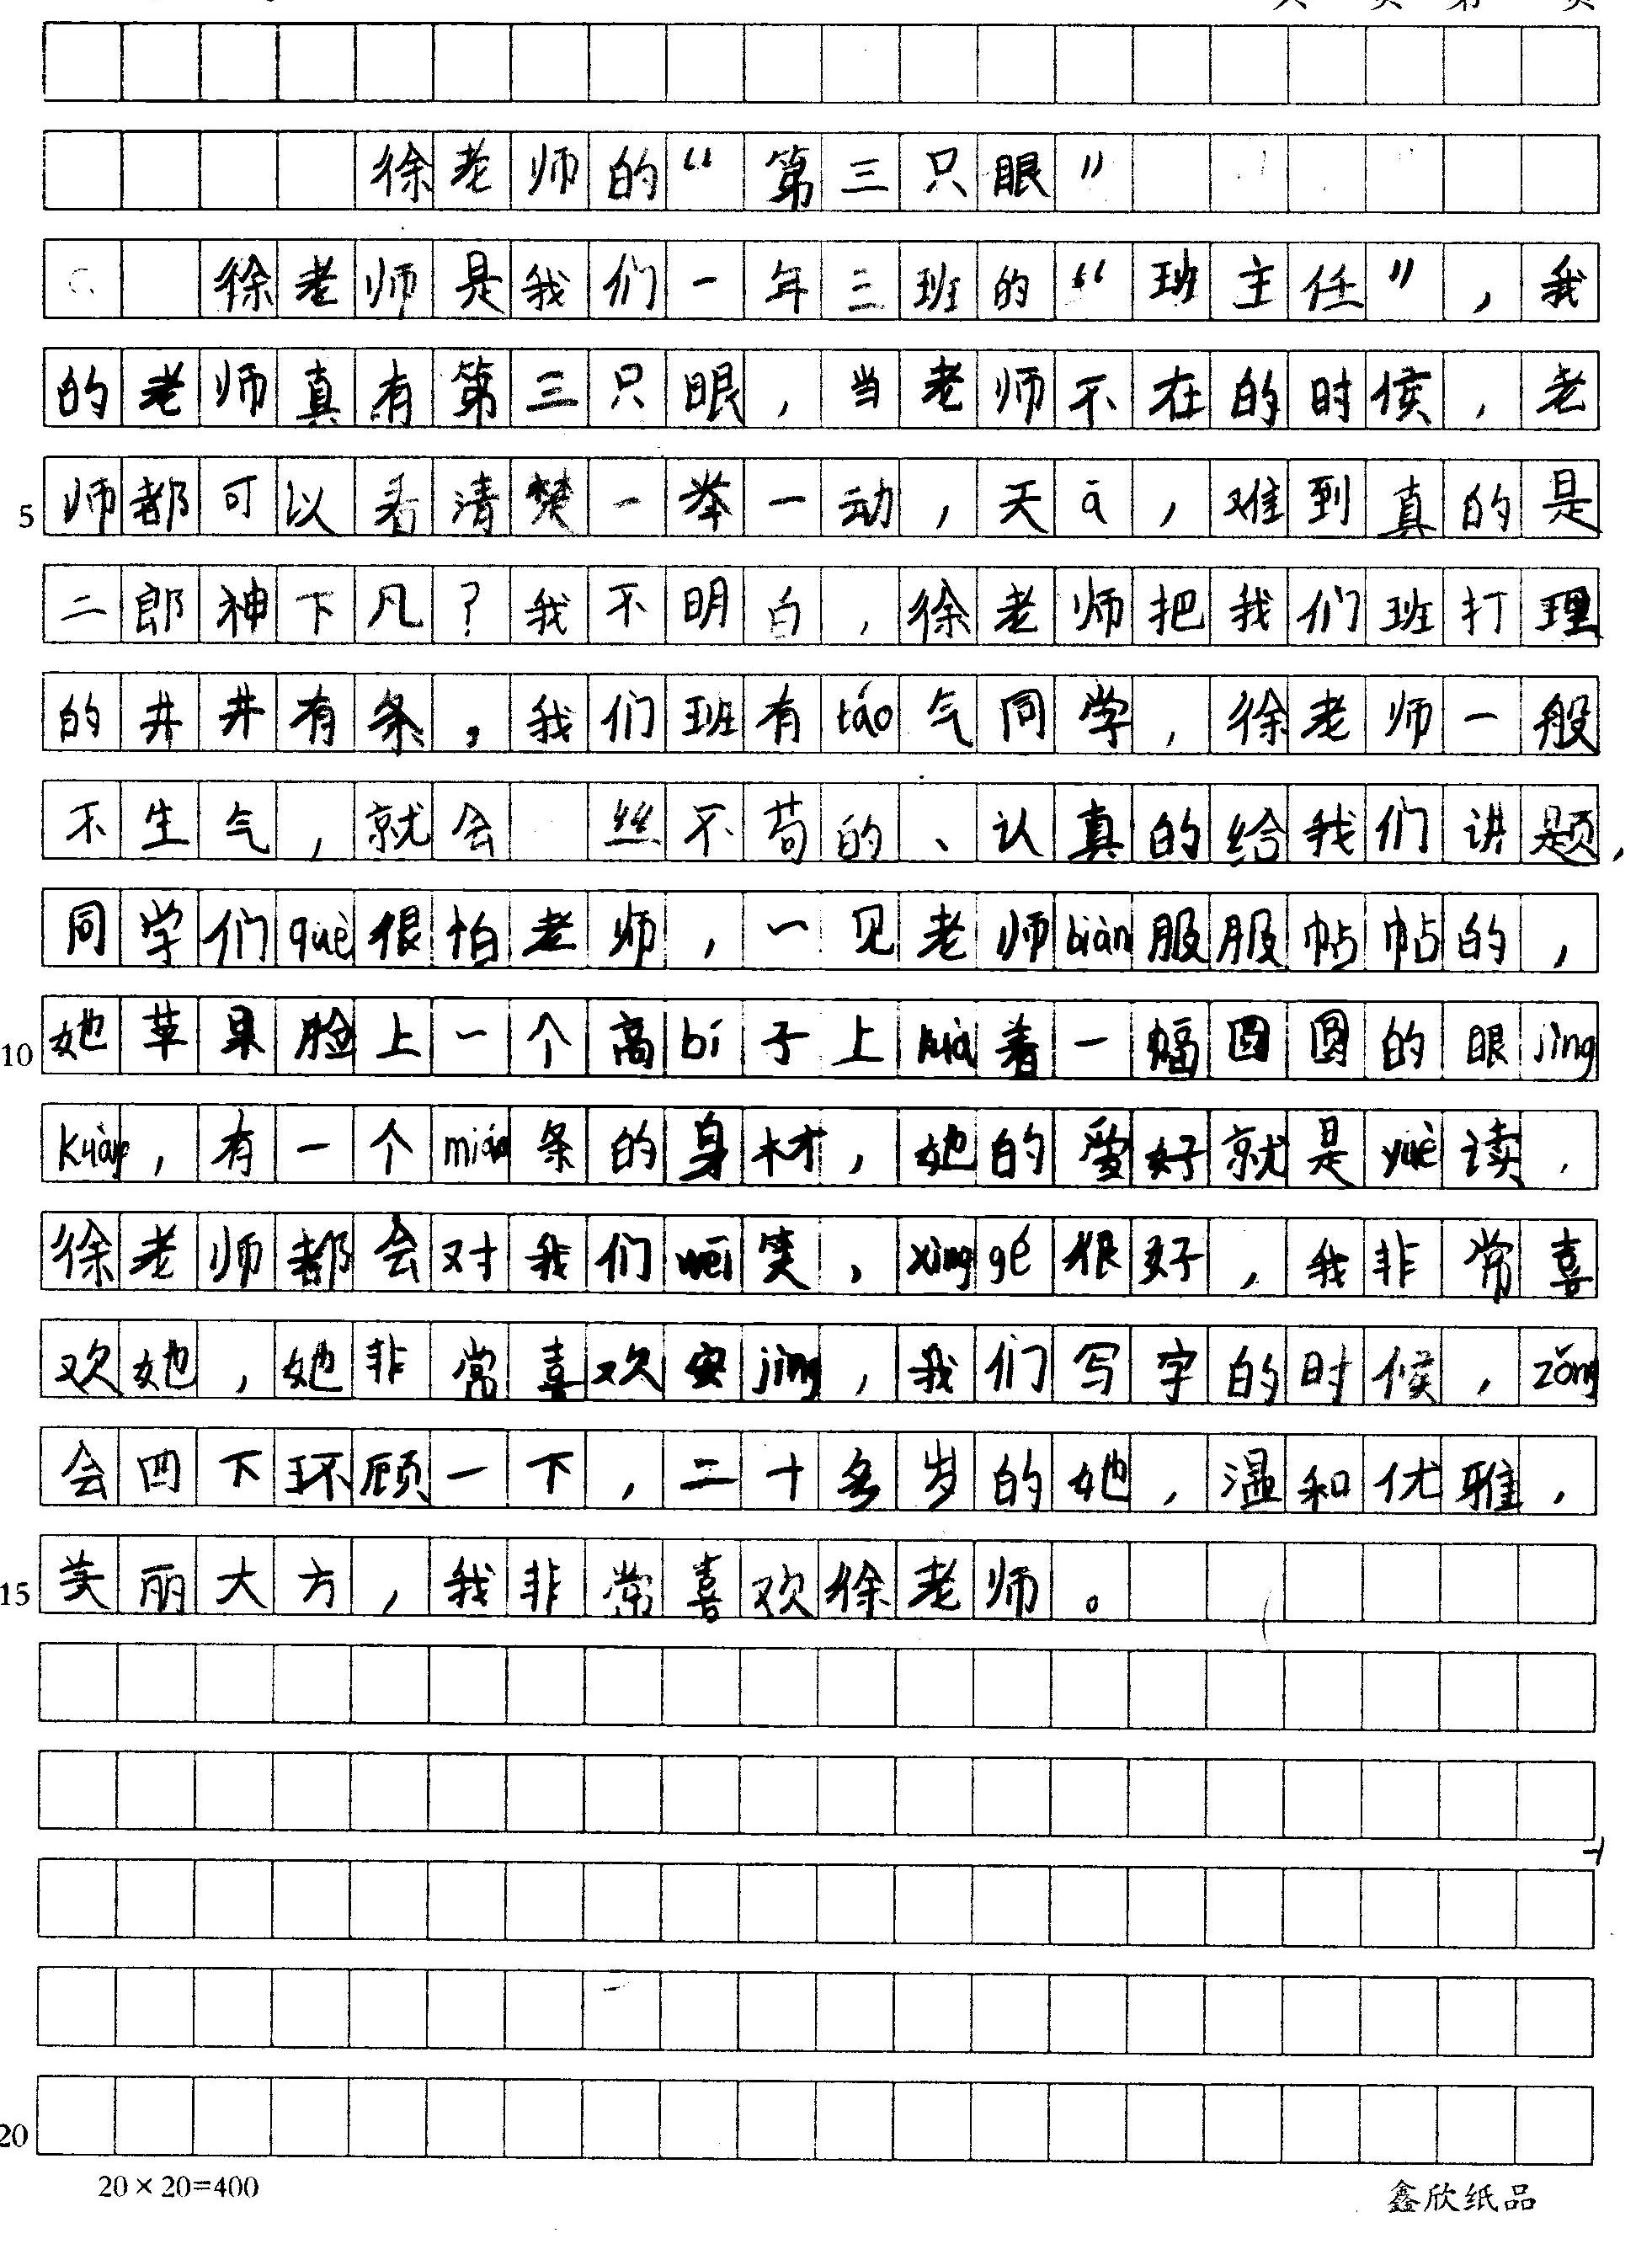 徐老师的“第三只眼”
徐老师是我们一年三班的“班主任”，我
的老师真有第三只眼，当老师不在的时侯，老
5 师都可以看清楚一举一动，天ā，难到真的是
二郎神下凡？我不明白，徐老师把我们班打理
的井井有条，我们班有táo气同学，徐老师一般
不生气，就会 丝不苟的、认真的给我们讲题，
同学们què很怕老师，一见老师biàn服服帖帖的，
10 她苹果脸上一个高bí子上kuà着一幅圆圆的眼jìng
kuàng，有一个miáo条的身材，她的爱好就是yuè读，
徐老师都会对我们wēi笑，xìng gé很好，我非常喜
欢她，她非常喜欢安jìng，我们写字的时候，zǒng
会四下环顾一下，二十多岁的她，温和优雅，
15 美丽大方，我非常喜欢徐老师。
20
20×20=400 鑫欣纸品